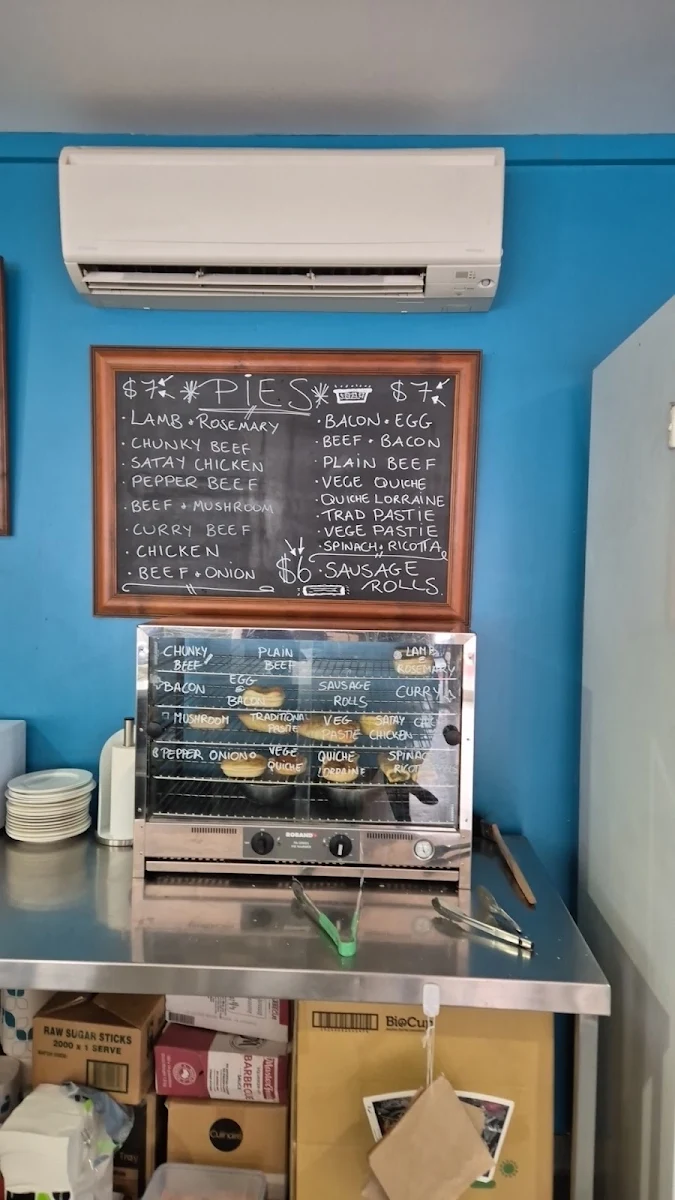 $7 * PIES * $7
· LAMB + ROSEMARY
· CHUNKY BEEF
· SATAY CHICKEN
· PEPPER BEEF
· BEEF + MUSHROOM
· CURRY BEEF
· CHICKEN
· BEEF + ONION
· BACON + EGG
· BEEF + BACON
· PLAIN BEEF
· VEGE QUICHE
· QUICHE LORRAINE
· TRAD PASTIE
· VEGE PASTIE
· SPINACH + RICOTTA
$6 · SAUSAGE
ROLLS
CHUNKY
BEEF
PLAIN
BEEF
LAMB
ROSEMARY
BACON
EGG
BACON
SAUSAGE
ROLLS
CURRY
MUSHROOM
TRADITIONAL
PASTIE
VEG
PASTIE
SATAY
CHICKEN
PEPPER
ONION
VEGE
QUICHE
QUICHE
LORRAINE
ROBAND
RAW SUGAR STICKS
2000 x 1 SERVE
BARBECUE
SAUCE
Culinaire
BioCup